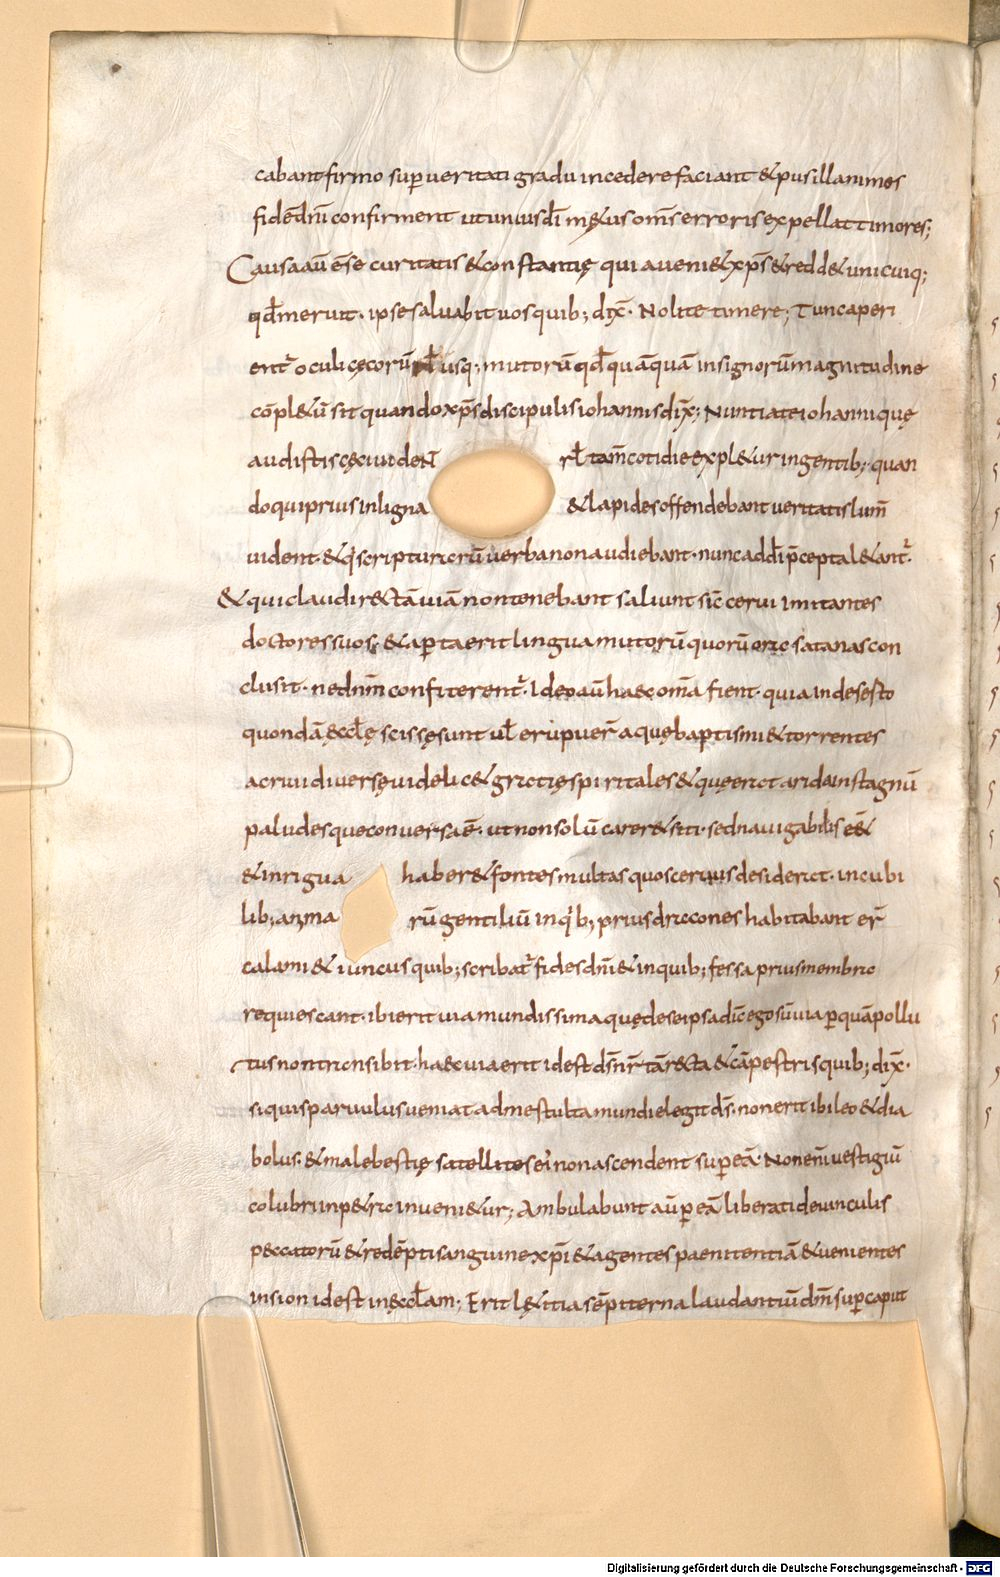 cabant firmo sup̄ ueritati gradu incedere faciant & pusillanimes
fidē dn̄i confirment ut unius dī m&us om̄s erroris expellat timores;
Causa aū ēse curitatis & constantię qui aueni& xp̄s & redd& unicuiq;
qd̄ meruit. ipse saluabit uos quib; dix̄. Nolite timere; Tunc aperi
ent᷑ oculi cęcorū usq; mutorū qd̄ quāquā in signorū magnitudine
cōpl&ū sit quando xp̄s discipulis iohannis dix̄; Nuntiate iohanni quę
audistis cęci uideN̄ rł tam̄ cotidie expl&ur in gentib; quan
do qui prius in ligna & lapides offendebant ueritatis lum̄
uident. & q̇ scripturarū uerba non audiebant. nunc ad dī p̄cepta l&ant᷑.
& qui claudi r&tā uiā non tenebant saliunt sic̄ cerui imitantes
doctores suos; & ap̄ta erit lingua mutorū quorū ora satanas con
clusit. ne dn̄m confiterent᷑. Ideo aū haec om̄a fient. quia in deserto
quondā ęccłę scissę sunt uł erupuer̄ aquę baptismi & torrentes
ac riui diuersę uidelic& gratię spiritales & quę erat arida in stagnū
paludesque conuersa ē. ut non solū carer& siti. sed nauigabilis ēē&
& inrigua haber& fontes multas quos ceruus desiderat. in cubi
lib; anima rū gentiliū in q̇b; prius dracones habitabant er̄
calami & iuncus quib; scribat᷑ fides dn̄i & in quib; fessa prius membra
requiescant. ibi erit uia mundissima quę de se ipsa dic̄ ego sū uia p̄ quā pollu
tus non transibit. haec uia erit id est ds̄ nr̄ tā r&ta & cāpestris quib; dix̄.
siquis paruulus ueniat ad me stulta mundi elegit ds̄. non erit ibi leo & dia
bolus. & malę bestię satellites ei non ascendent sup̄ eā. Non enī uestigiū
colubri in p&ra inueni&ur; Ambulabunt aū p̄ eā liberati de uinculis
peccatorū & redēpti sanguine xp̄i & agentes paenitentiā & uenientes
in sion id est in ęccłam; Erit l&itia sēpiterna laudantiū dn̄m sup̄ caput
Digitalisierung gefördert durch die Deutsche Forschungsgemeinschaft - DFG